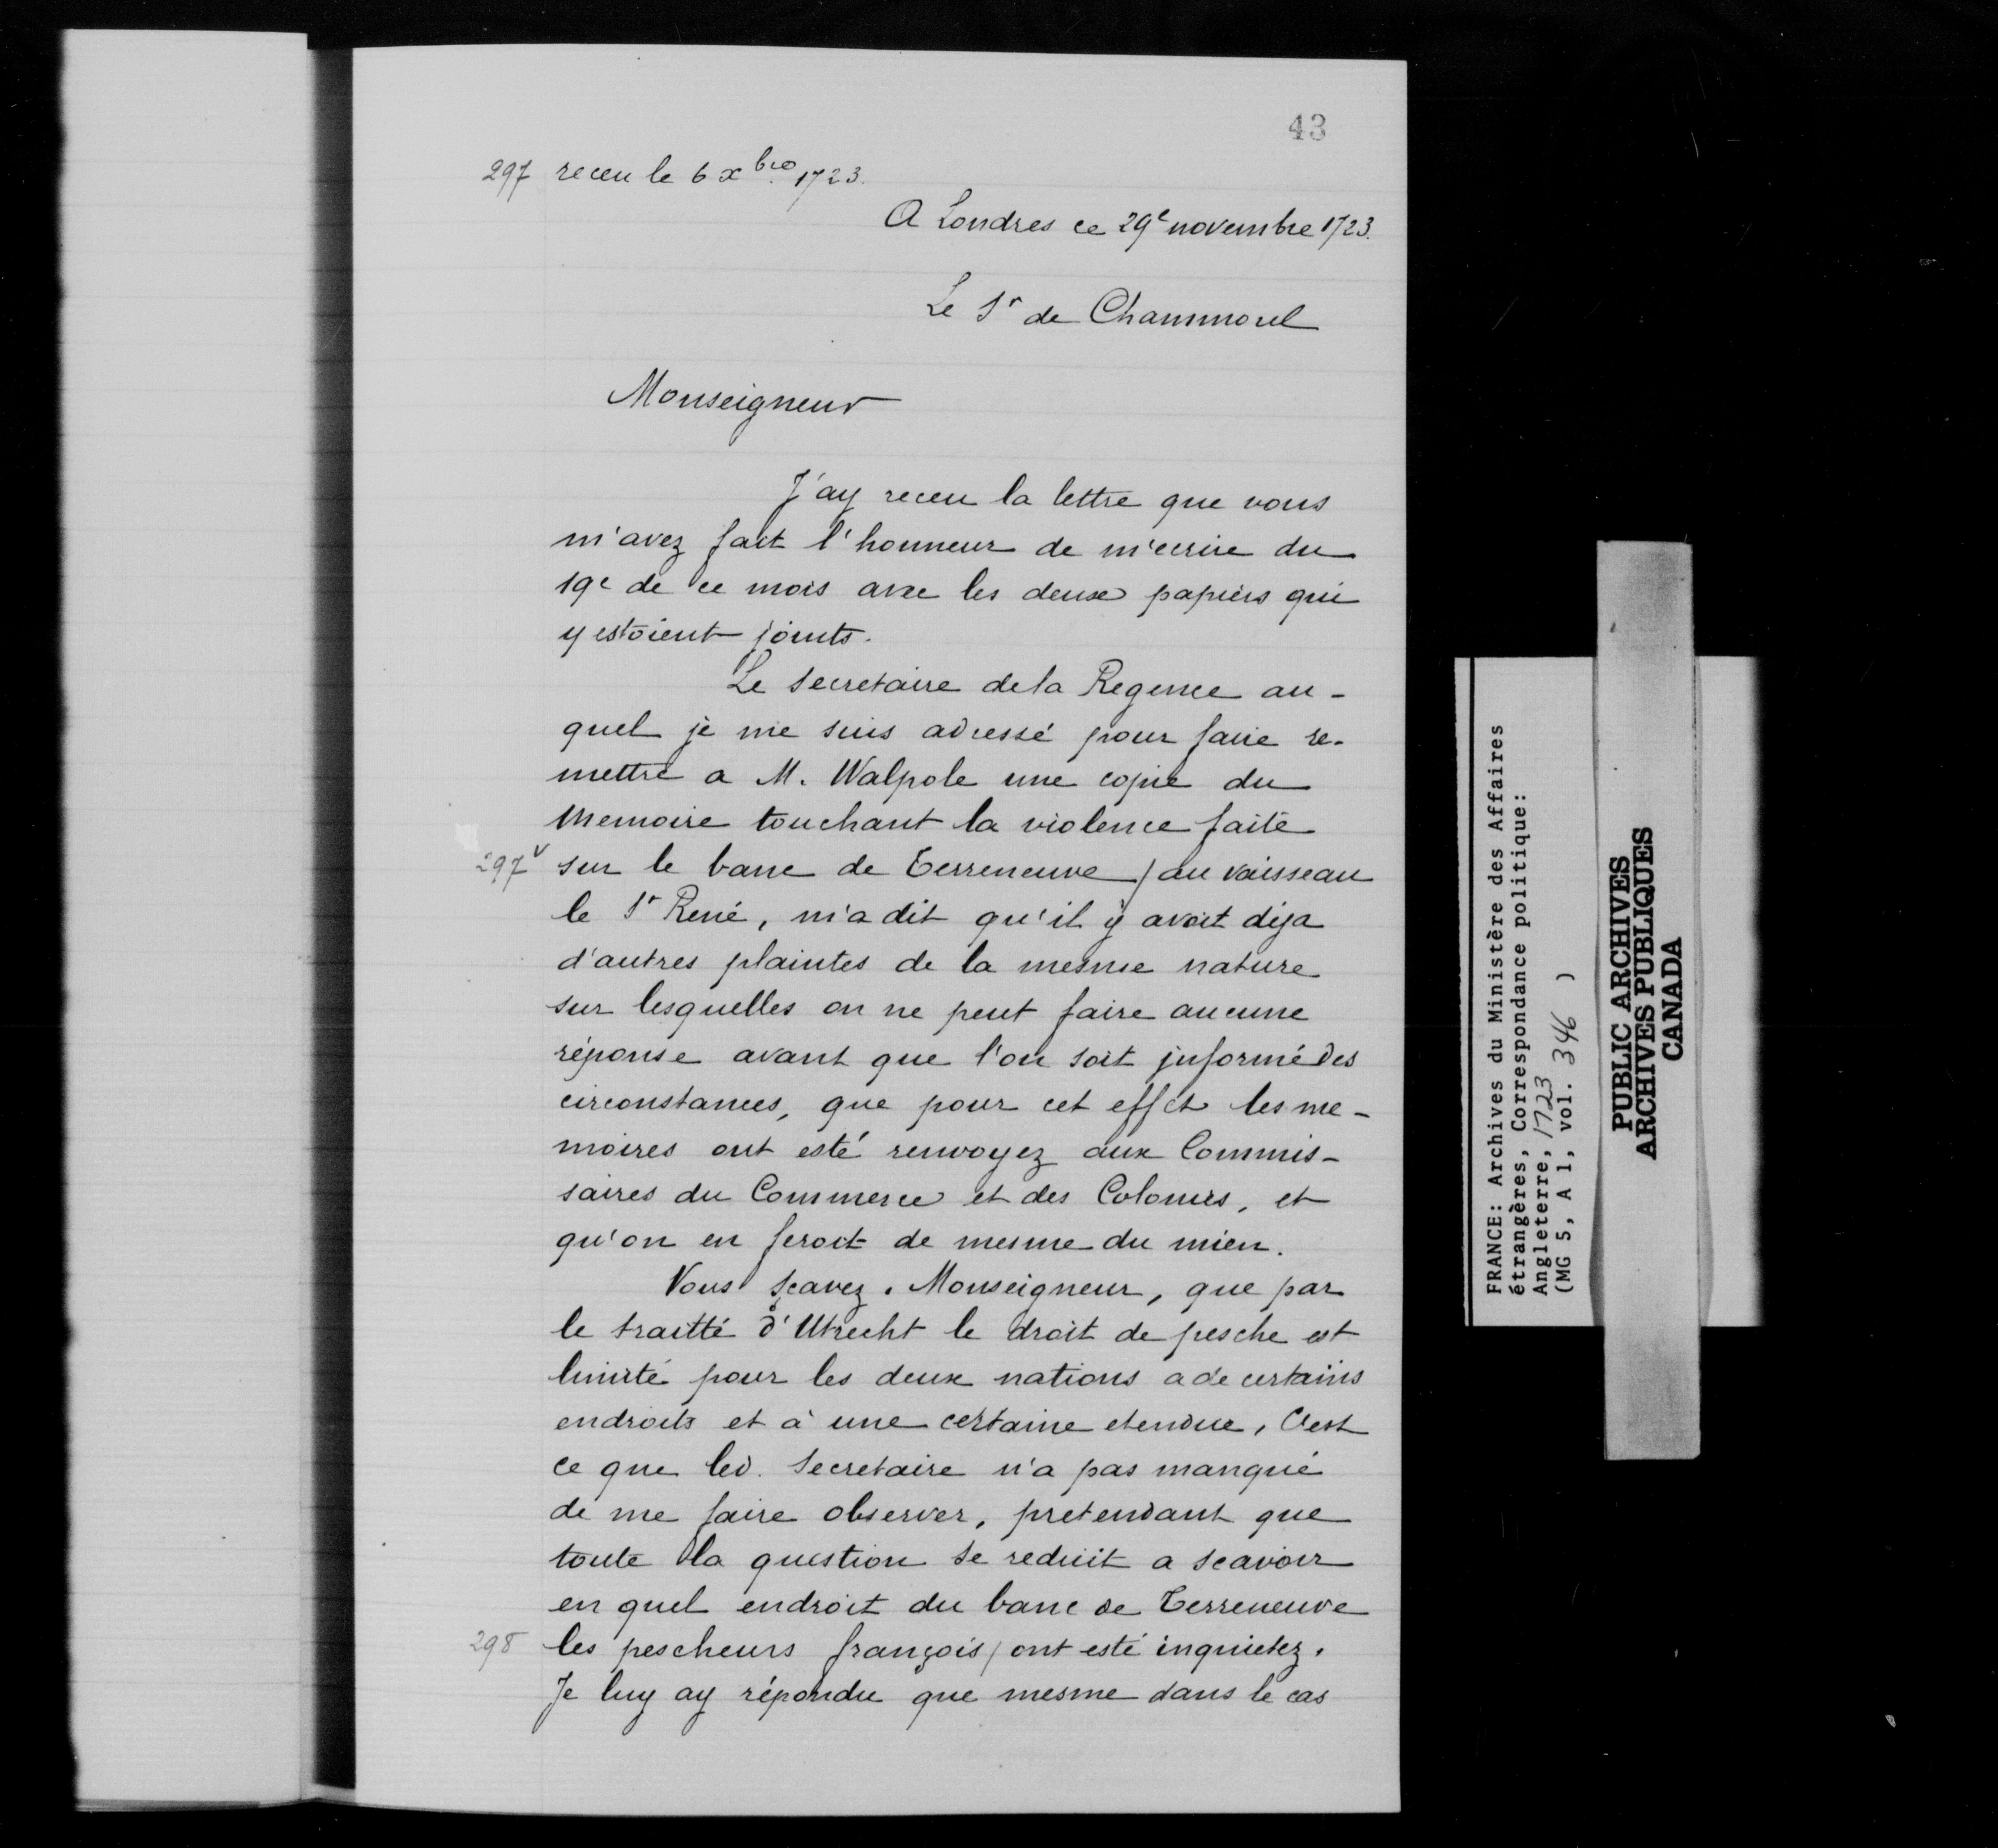 43
297 receu le 6 xbre 1723.
A Londres ce 29e novembre 1723.
Le Sr de Chammorel
Monseigneur
J'ay receu la lettre que vous
m'avez fait l'honneur de m'ecrire du
19e de ce mois avec les deux papiers qui
y estoient joints.
Le Secretaire de la Regence au-
quel je me suis adressé pour faire re-
mettre a M. Walpole une copie du
Memoire touchant la violence faite
297v sur le banc de Terreneuve / au vaisseau
le St René, m'a dit qu'il y avoit déja
d'autres plaintes de la mesme nature
sur lesquelles on ne peut faire aucune
réponse avant que l'on soit jnformé des
circonstances, que pour cet effet les me-
moires ont esté renvoyez aux Commis-
saires du Commerce et des Colonies, et
qu'on en feroit de mesme du mien.
Vous sçavez, Monseigneur, que par
le traitté d'Utrecht le droit de pesche est
limité pour les deux nations a de certains
endroits et à une certaine etendue, C'est
ce que led. Secretaire n'a pas manqué
de me faire observer, pretendant que
toute la question se reduit a scavoir
en quel endroit du banc de Terreneuve
298 les pescheurs françois / ont esté inquietez.
Je luy ay répondu que mesme dans le cas
FRANCE: Archives du Ministère des Affaires
étrangères, Correspondance politique:
Angleterre, 1723
(MG 5, A 1, vol. 346 )
PUBLIC ARCHIVES
ARCHIVES PUBLIQUES
CANADA